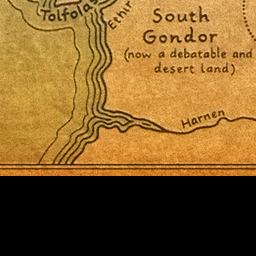 Tolfolas
Ethir
South
Gondor
(now a debatable and
desert land)
Harnen